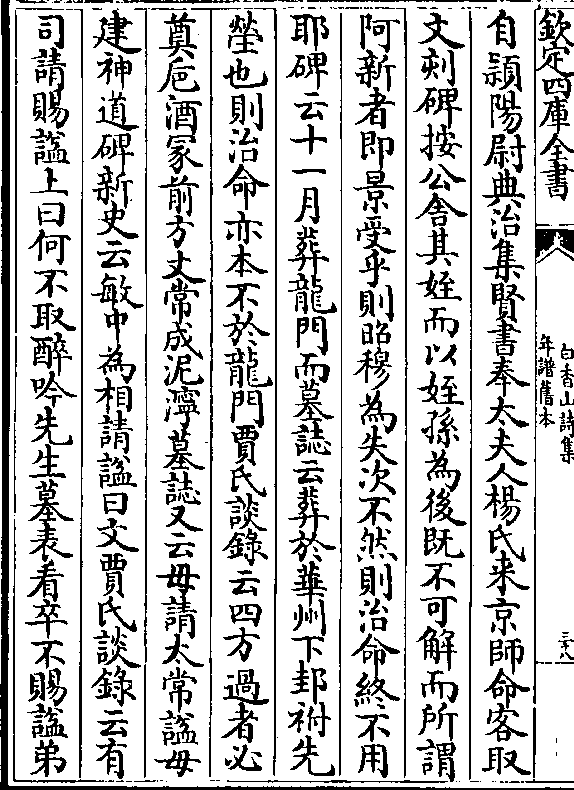 欽定四庫全書
白香山詩集
年譜舊本
三十八
自潁陽尉典治集賢書奉太夫人楊氏来京師命客取
文刻碑按公舍其姪而以姪孫為後既不可解而所謂
阿新者即景受乎則昭穆為失次不然則治命終不用
耶碑云十一月葬龍門而墓誌云葬於華州下邽祔先
塋也則治命亦本不於龍門賈氏談錄云四方過者必
奠巵酒冢前方丈常成泥濘墓誌又云毋請太常諡毋
建神道碑新史云敏中為相請諡曰文賈氏談錄云有
司請賜諡上曰何不取醉吟先生墓表看卒不賜諡弟